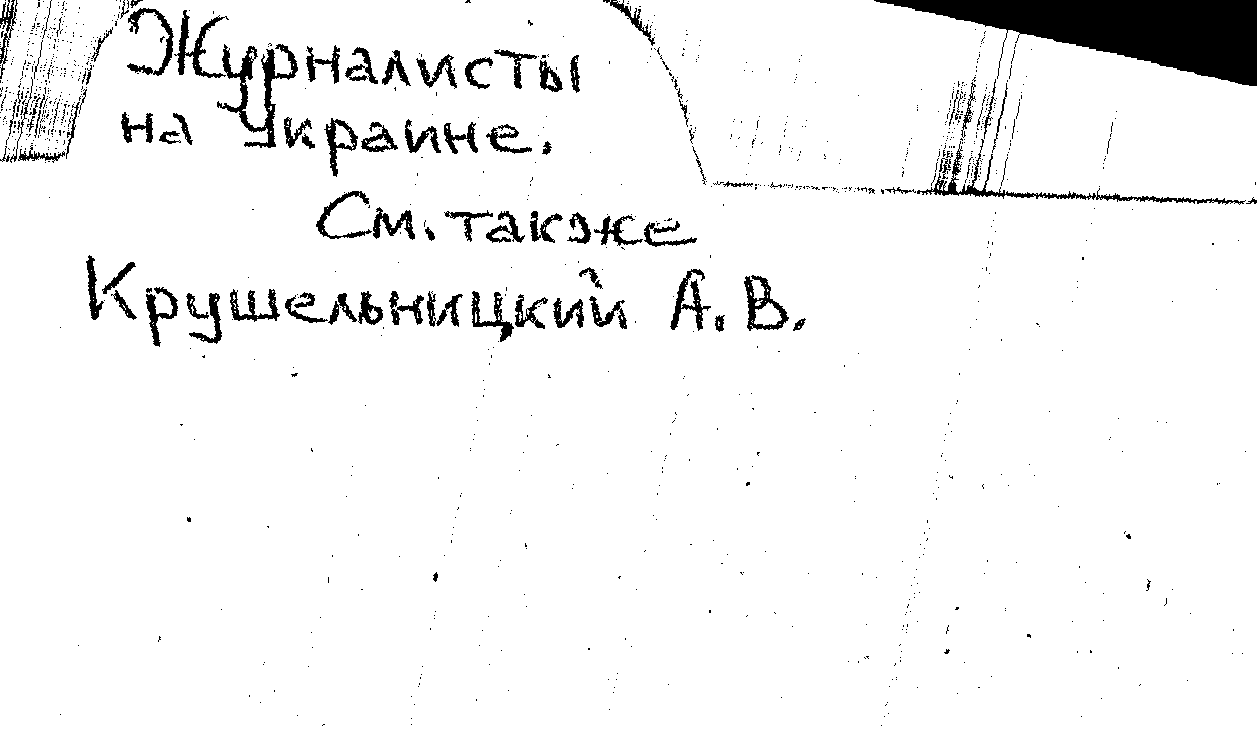 Журналисты
на Украине.
См. также
Крушельницкий А. В.